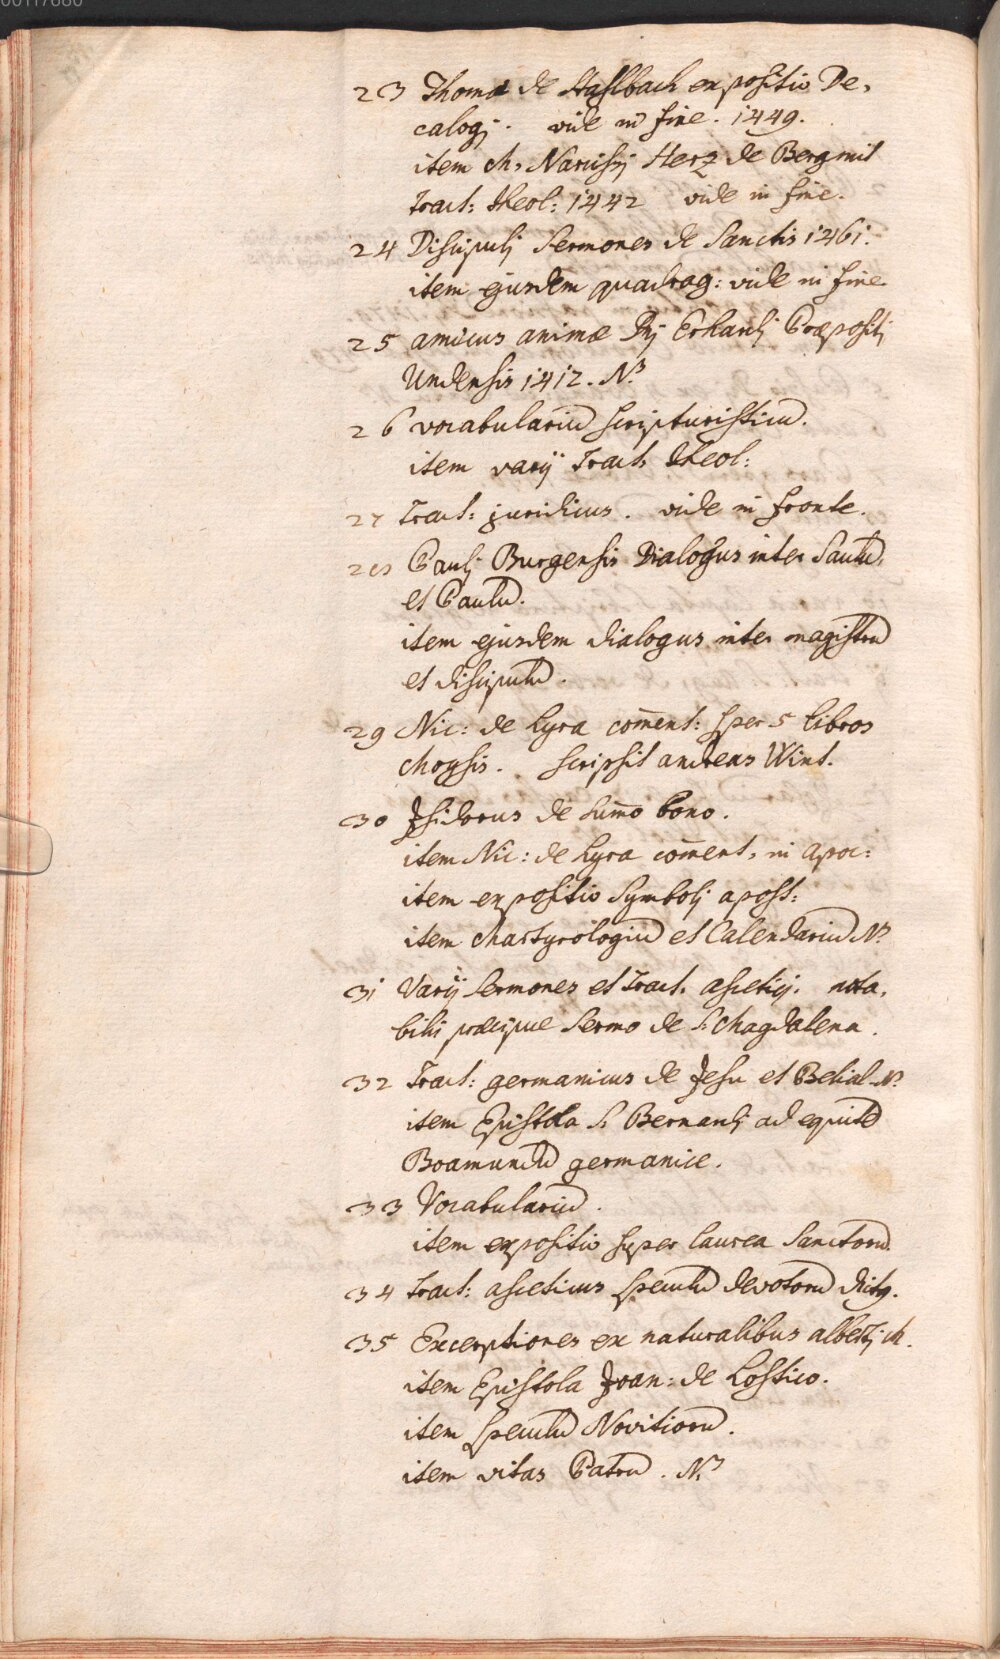 23 Thomæ de Haslbach expositio De,
calogj. vide in fine. 1449.
item M, Narcissj Herz de Berg mit
Tract: theol: 1442 vide in fine.
24 Discipulj Sermones de Sanctis 1461.
item ejusdem quadrag: vide in fine.
25 amicus animæ Dnj Erhardj Præpositj
Undensis 1412. NB
26 vocabulariū scripturisticū.
item varij Tract, theol:
27 Tract: juridicus. vide in fronte.
28 Paulj Burgensis Dialogus inter Saulū,
et Paulū.
item ejusdem dialogus inter magistrū
et discipulū.
29 Nic: de Lyra com̄ent: sper 5 libros
Moysis. scripsit andreas Wint.
30 Isidorus de sum̄o bono.
item Nic: de Lyra com̄ent, in apoc:
item expositio Symbolj apost:
item Martyrologiū et Calendariū NB
31 Varij Sermones et Tract. ascetici. nota,
bilis præcipue Sermo de S. Magdalena.
32 Tract: germanicus de Jesu et Belial. NB.
item Epistola S. Bernardj ad equitē
Boamundū germanice.
33 Vocabulariū.
item expositio super laurea Sanctorū.
34 Tract: asceticus speculū devotorū dictꝰ.
35 Excerptiones ex naturalibus albertj M.
item Epistola Joan: de Lostico.
item speculū Novitiorū.
item vitas Patrū. NB